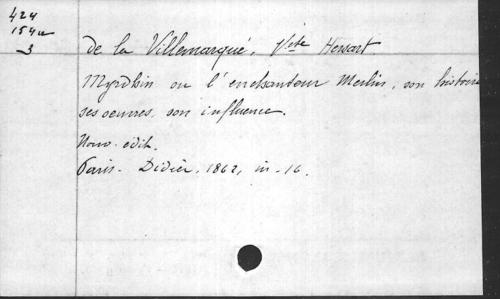 424
154a
3
de la Villemarqué, Vcte Hersart
Myrdhin ou l'enchanteur Merlin, son histoire
ses oeuvres, son influence.
Nouv. edit.
Paris. Didier. 1862, in-16.